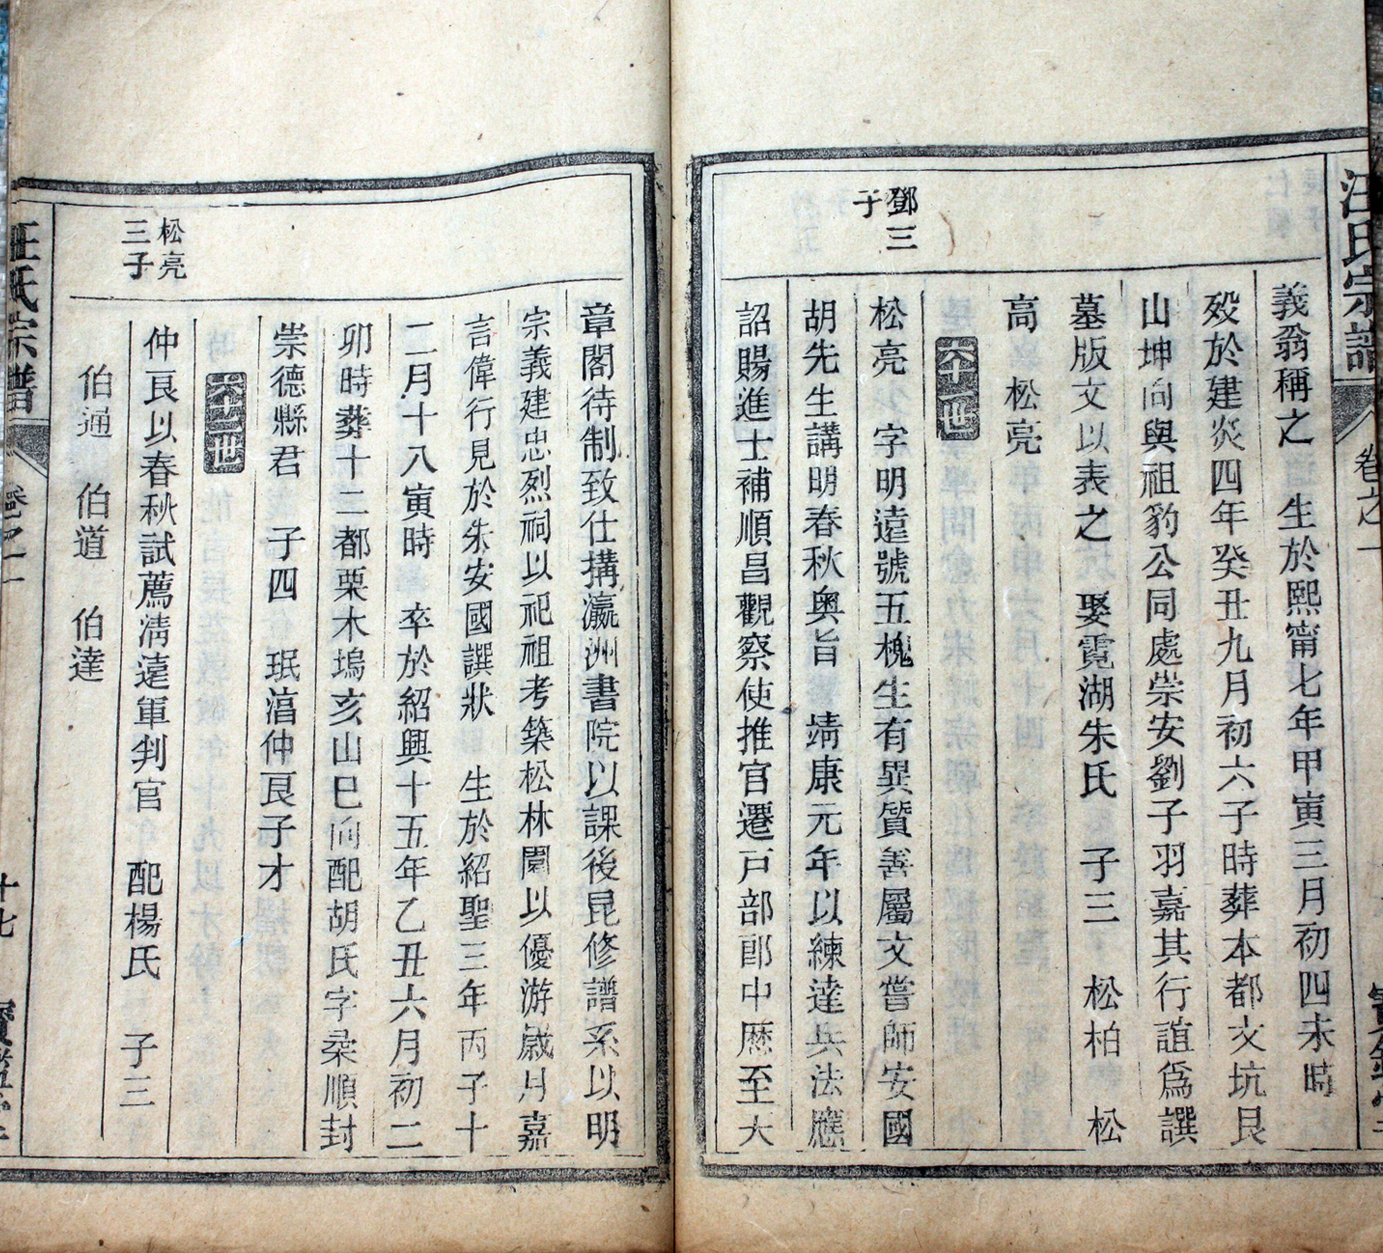 汪氏宗譜
卷之一
義翁稱之 生於熙甯七年甲寅三月初四未時
歿於建炎四年癸丑九月初六子時葬本都文坑艮
山坤向與祖豹公同處崇安劉子羽嘉其行誼爲譔
墓版文以表之 娶霓湖朱氏 子三 松柏 松
高 松亮
六十一世
鄧三
子
松亮 字明遠號五槐生有異質善屬文嘗師安國
胡先生講明春秋奥旨 靖康元年以練達兵法應
詔賜進士補順昌觀察使推官遷戸部郎中歷至大
章閣待制致仕搆瀛洲書院以課後昆修譜系以明
宗義建忠烈祠以祀祖考築松林園以優游歲月嘉
言偉行見於朱安國譔狀 生於紹聖三年丙子十
二月十八寅時 卒於紹興十五年乙丑六月初二
卯時葬十二都栗木塢亥山巳向配胡氏字柔順封
崇德縣君 子四 珉湻仲艮子才
六十二世
松亮
三子
仲艮以春秋試薦淸遠軍判官 配楊氏 子三
伯通 伯道 伯達
汪氏宗譜
卷之一
十七